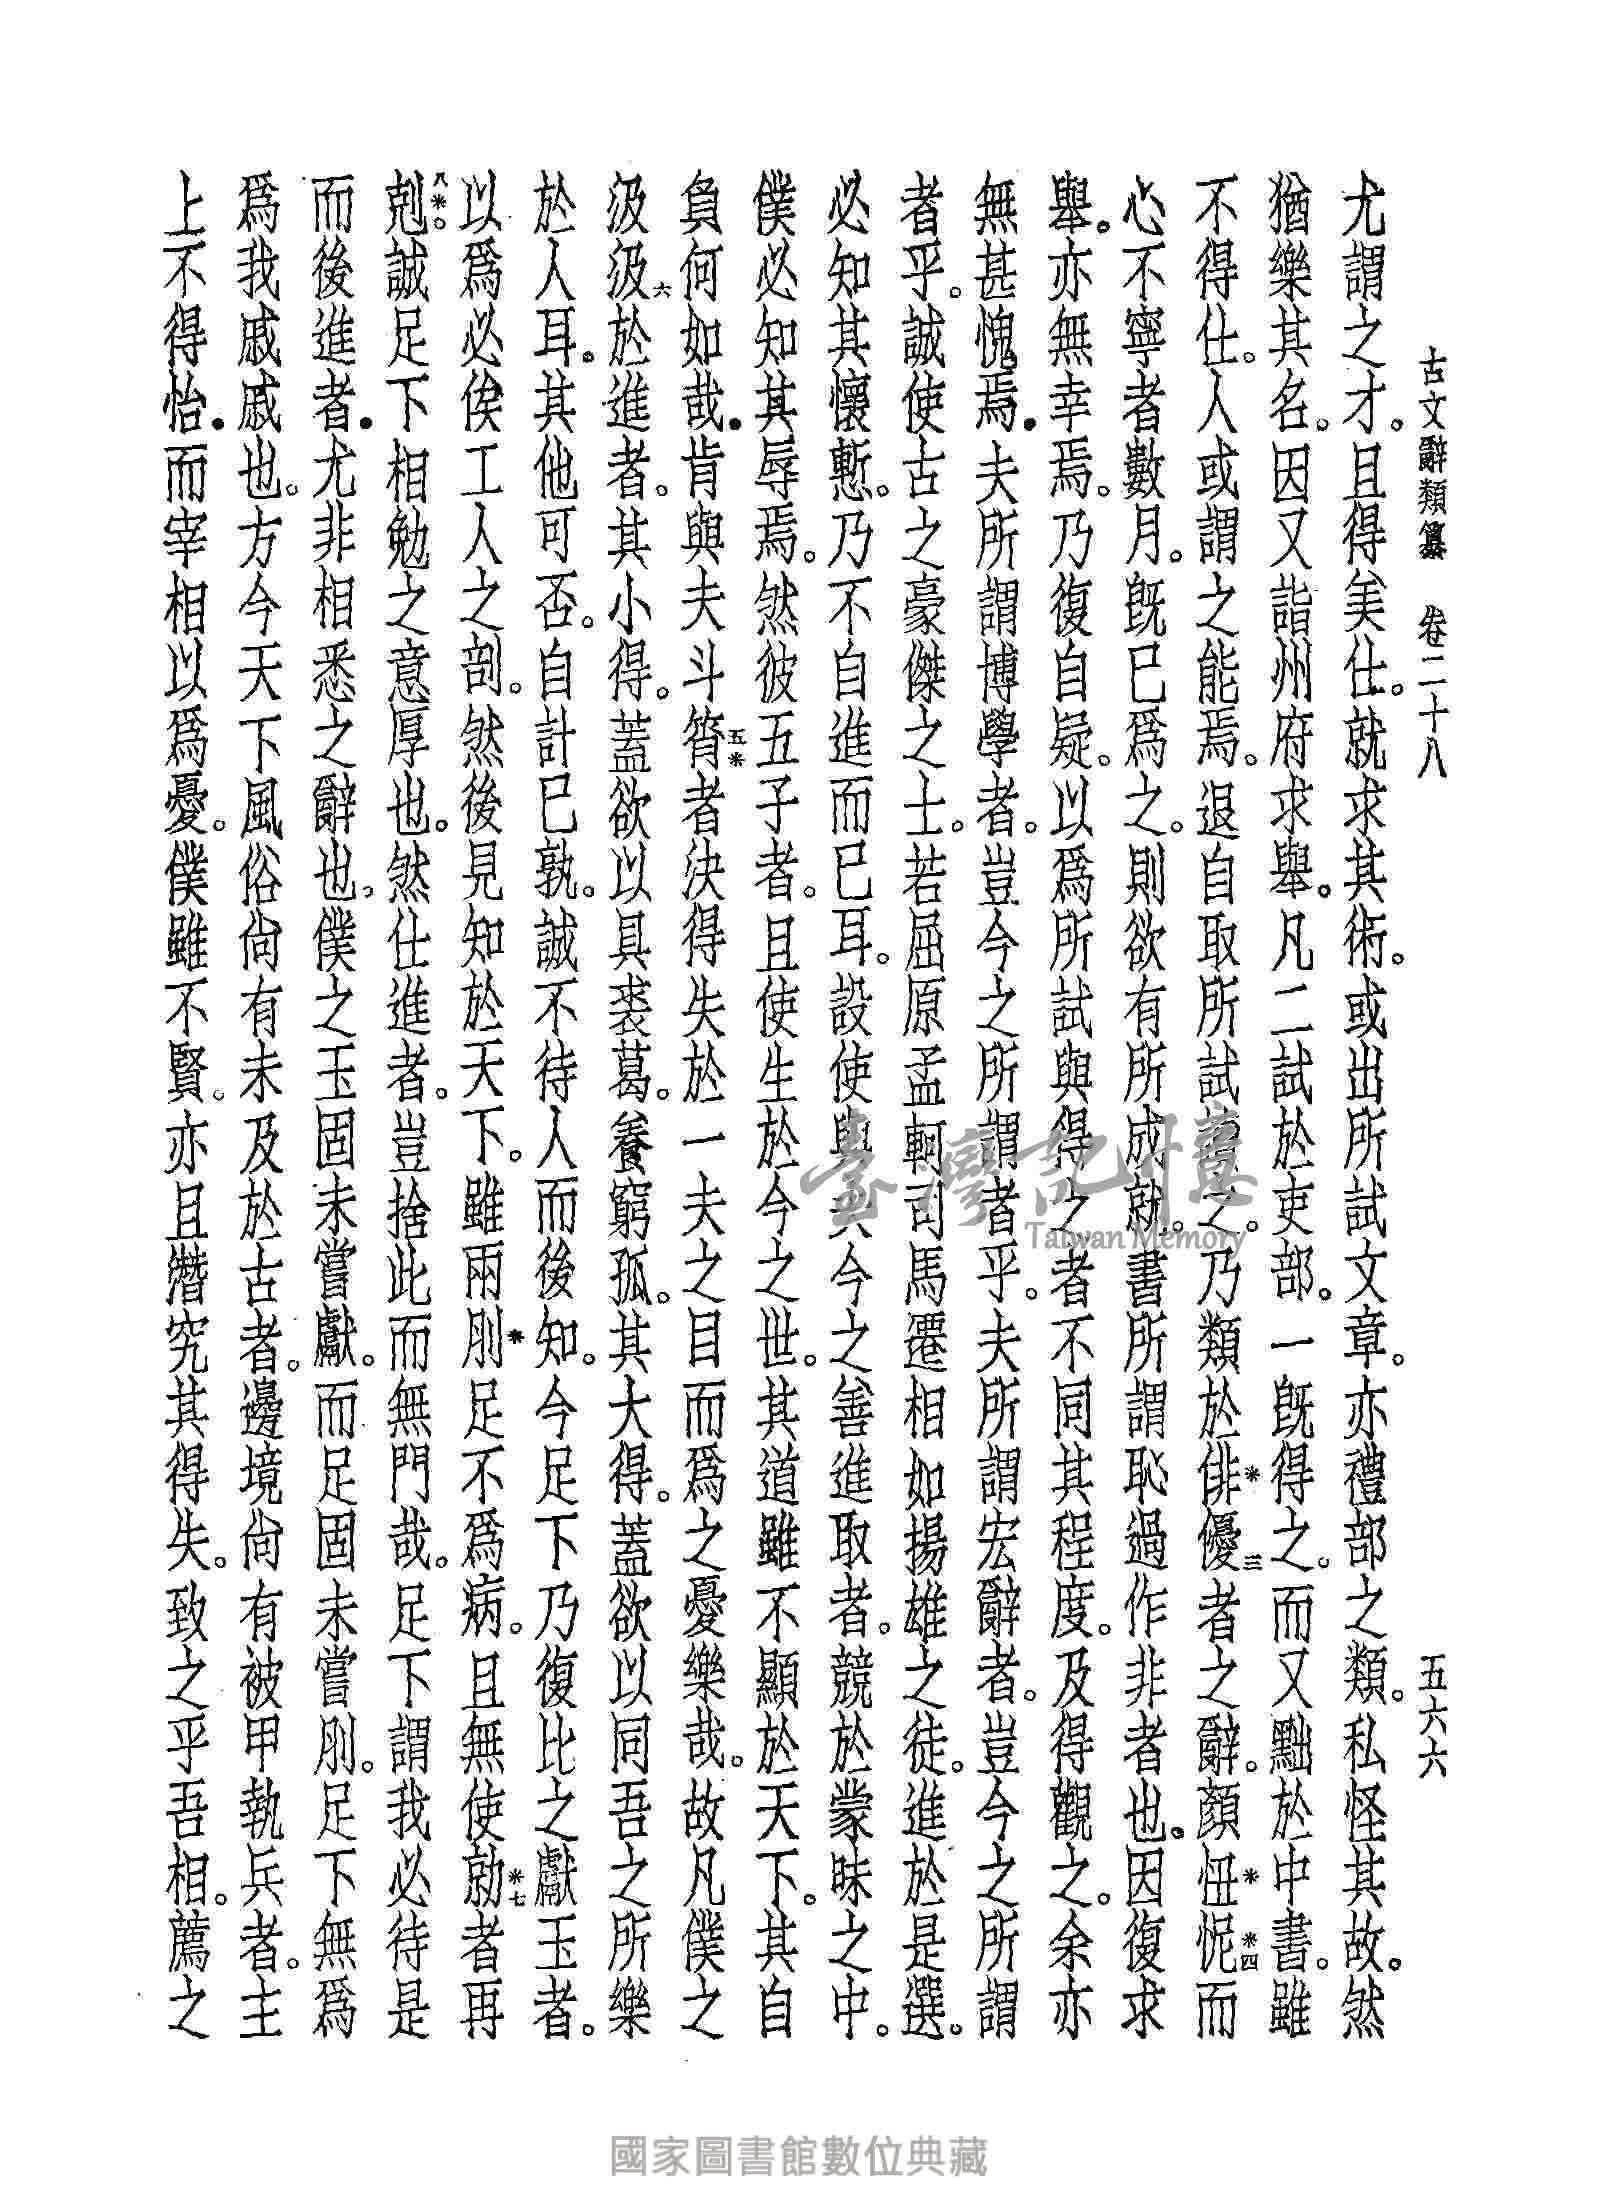 古文辭類纂　卷二十八　五六六
尤謂之才。且得美仕。就求其術。或出所試文章。亦禮部之類。私怪其故。然
猶樂其名。因又詣州府求舉。凡二試於吏部。一既得之。而又黜於中書。雖
不得仕。人或謂之能焉。退自取所試讀之。乃類於俳*優三者之辭。顏忸*怩*四而
心不寧者數月。既已爲之。則欲有所成就。書所謂恥過作非者也。因復求
舉。亦無幸焉。乃復自疑。以爲所試與得之者不同其程度。及得觀之。余亦
無甚愧焉。夫所謂博學者。豈今之所謂者乎。夫所謂宏辭者。豈今之所謂
者乎。誠使古之豪傑之士。若屈原孟軻司馬遷相如揚雄之徒。進於是選。
必知其懷慙。乃不自進而已耳。設使與夫今之善進取者。競於蒙昧之中。
僕必知其辱焉。然彼五子者。且使生於今之世。其道雖不顯於天下。其自
負何如哉。肯與夫斗筲五*者決得失於一夫之目而爲之憂樂哉。故凡僕之
汲汲六於進者。其小得。蓋欲以具裘葛。養窮孤。其大得。蓋欲以同吾之所樂
於人耳。其他可否。自計已孰。誠不待人而後知。今足下乃復比之獻玉者。
以爲必俟工人之剖。然後見知於天下。雖兩刖*足不爲病。且無使勍*七者再
剋八*。誠足下相勉之意厚也。然仕進者。豈捨此而無門哉。足下謂我必待是
而後進者。尤非相悉之辭也。僕之玉固未嘗獻。而足固未嘗刖。足下無爲
爲我戚戚也。方今天下風俗尙有未及於古者。邊境尙有被甲執兵者。主
上不得怡。而宰相以爲憂。僕雖不賢。亦且潛究其得失。致之乎吾相。薦之
臺灣記憶
Taiwan Memory
國家圖書館數位典藏